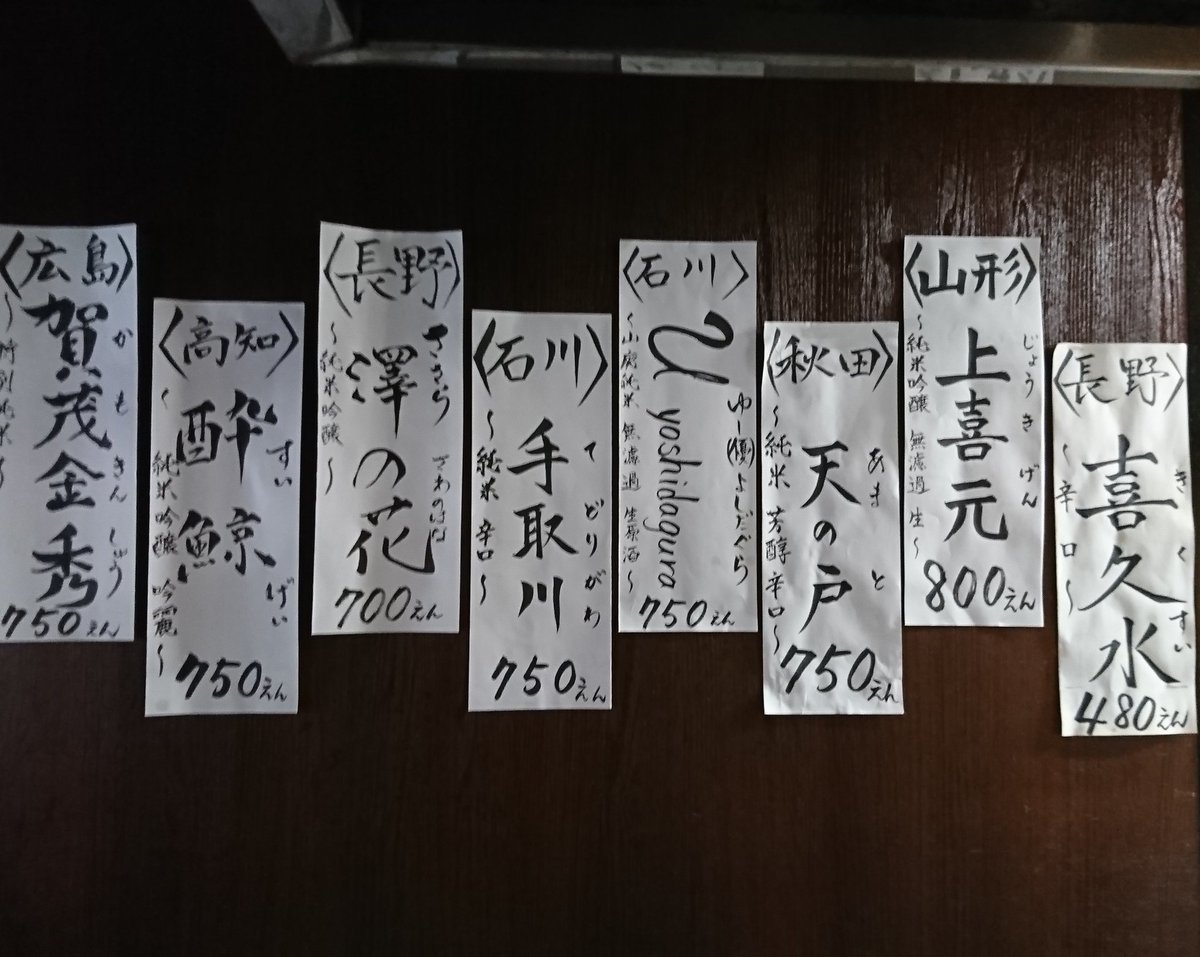 〈長野〉
きくすい
喜久水
~辛口~
480えん
〈山形〉
じょうきげん
上喜元
~純米吟醸 無濾過 生~
800えん
〈秋田〉
あまと
天の戸
~純米 芳醇 辛口~
750えん
〈石川〉
ゆー(優)よしだぐら
U yoshidagura
~山廃純米 無濾過 生原酒~
750えん
〈石川〉
てどりがわ
手取川
~純米 辛口~
750えん
〈長野〉
ささら
さわのはな
澤の花
~純米吟醸~
700えん
〈高知〉
すいげい
酔鯨
~純米吟醸 吟麗~
750えん
〈広島〉
かもきんしゅう
賀茂金秀
~特別純米~
750えん